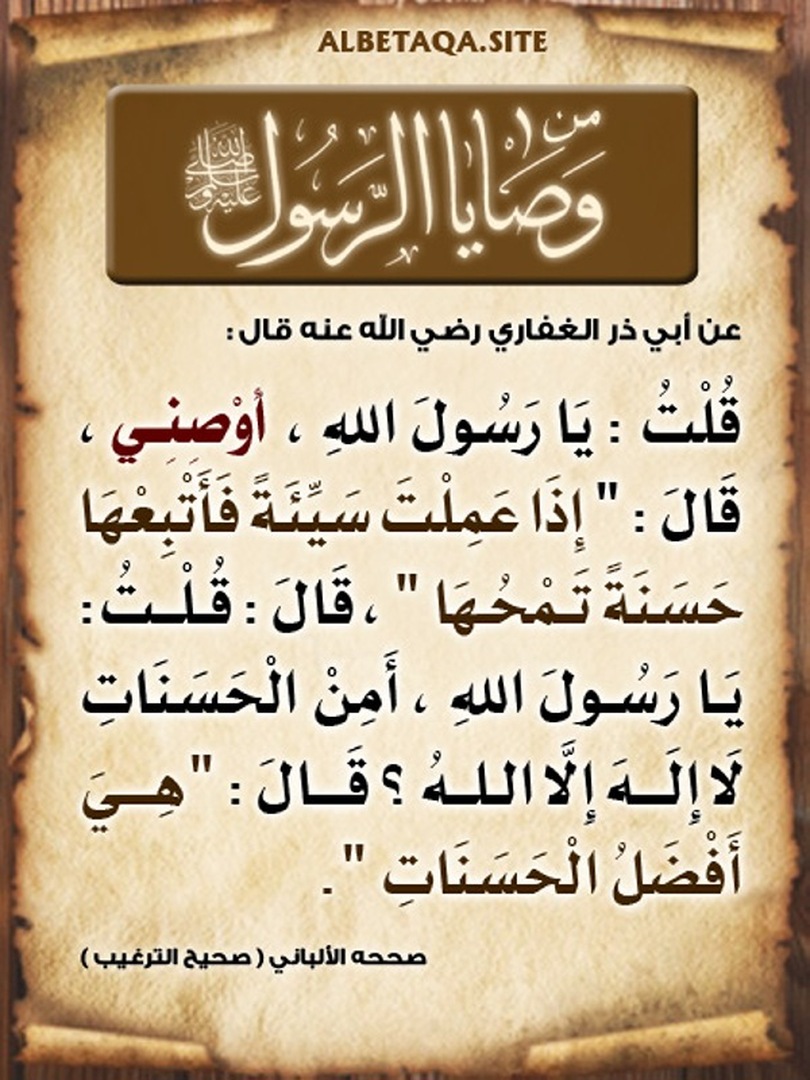 ALBETAQA.SITE
من
وَصَايَا الرَّسُول صلى الله عليه وسلم
عن أبي ذر الغفاري رضي الله عنه قال :
قُلْتُ : يَا رَسُولَ اللهِ ، أَوْصِنِي ،
قَالَ : " إِذَا عَمِلْتَ سَيِّئَةً فَأَتْبِعْهَا
حَسَنَةً تَمْحُهَا " ، قَالَ : قُلْتُ :
يَا رَسُولَ اللهِ ، أَمِنْ الْحَسَنَاتِ
لَا إِلَهَ إِلَّا اللهُ ؟ قَالَ : " هِيَ
أَفْضَلُ الْحَسَنَاتِ " .
صححه الألباني ( صحيح الترغيب )